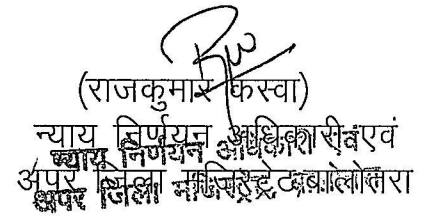 (राजकुमार कस्वा)
न्याय निर्णयन अधिकारी एवं
अपर जिला मजिस्ट्रेट बालोतरा